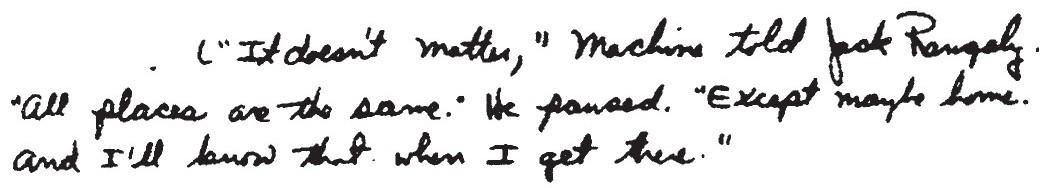 ("It doesn't matter," Machine told Jack Rangely.
"All places are the same." He paused. "Except maybe home.
And I'll know that when I get there."